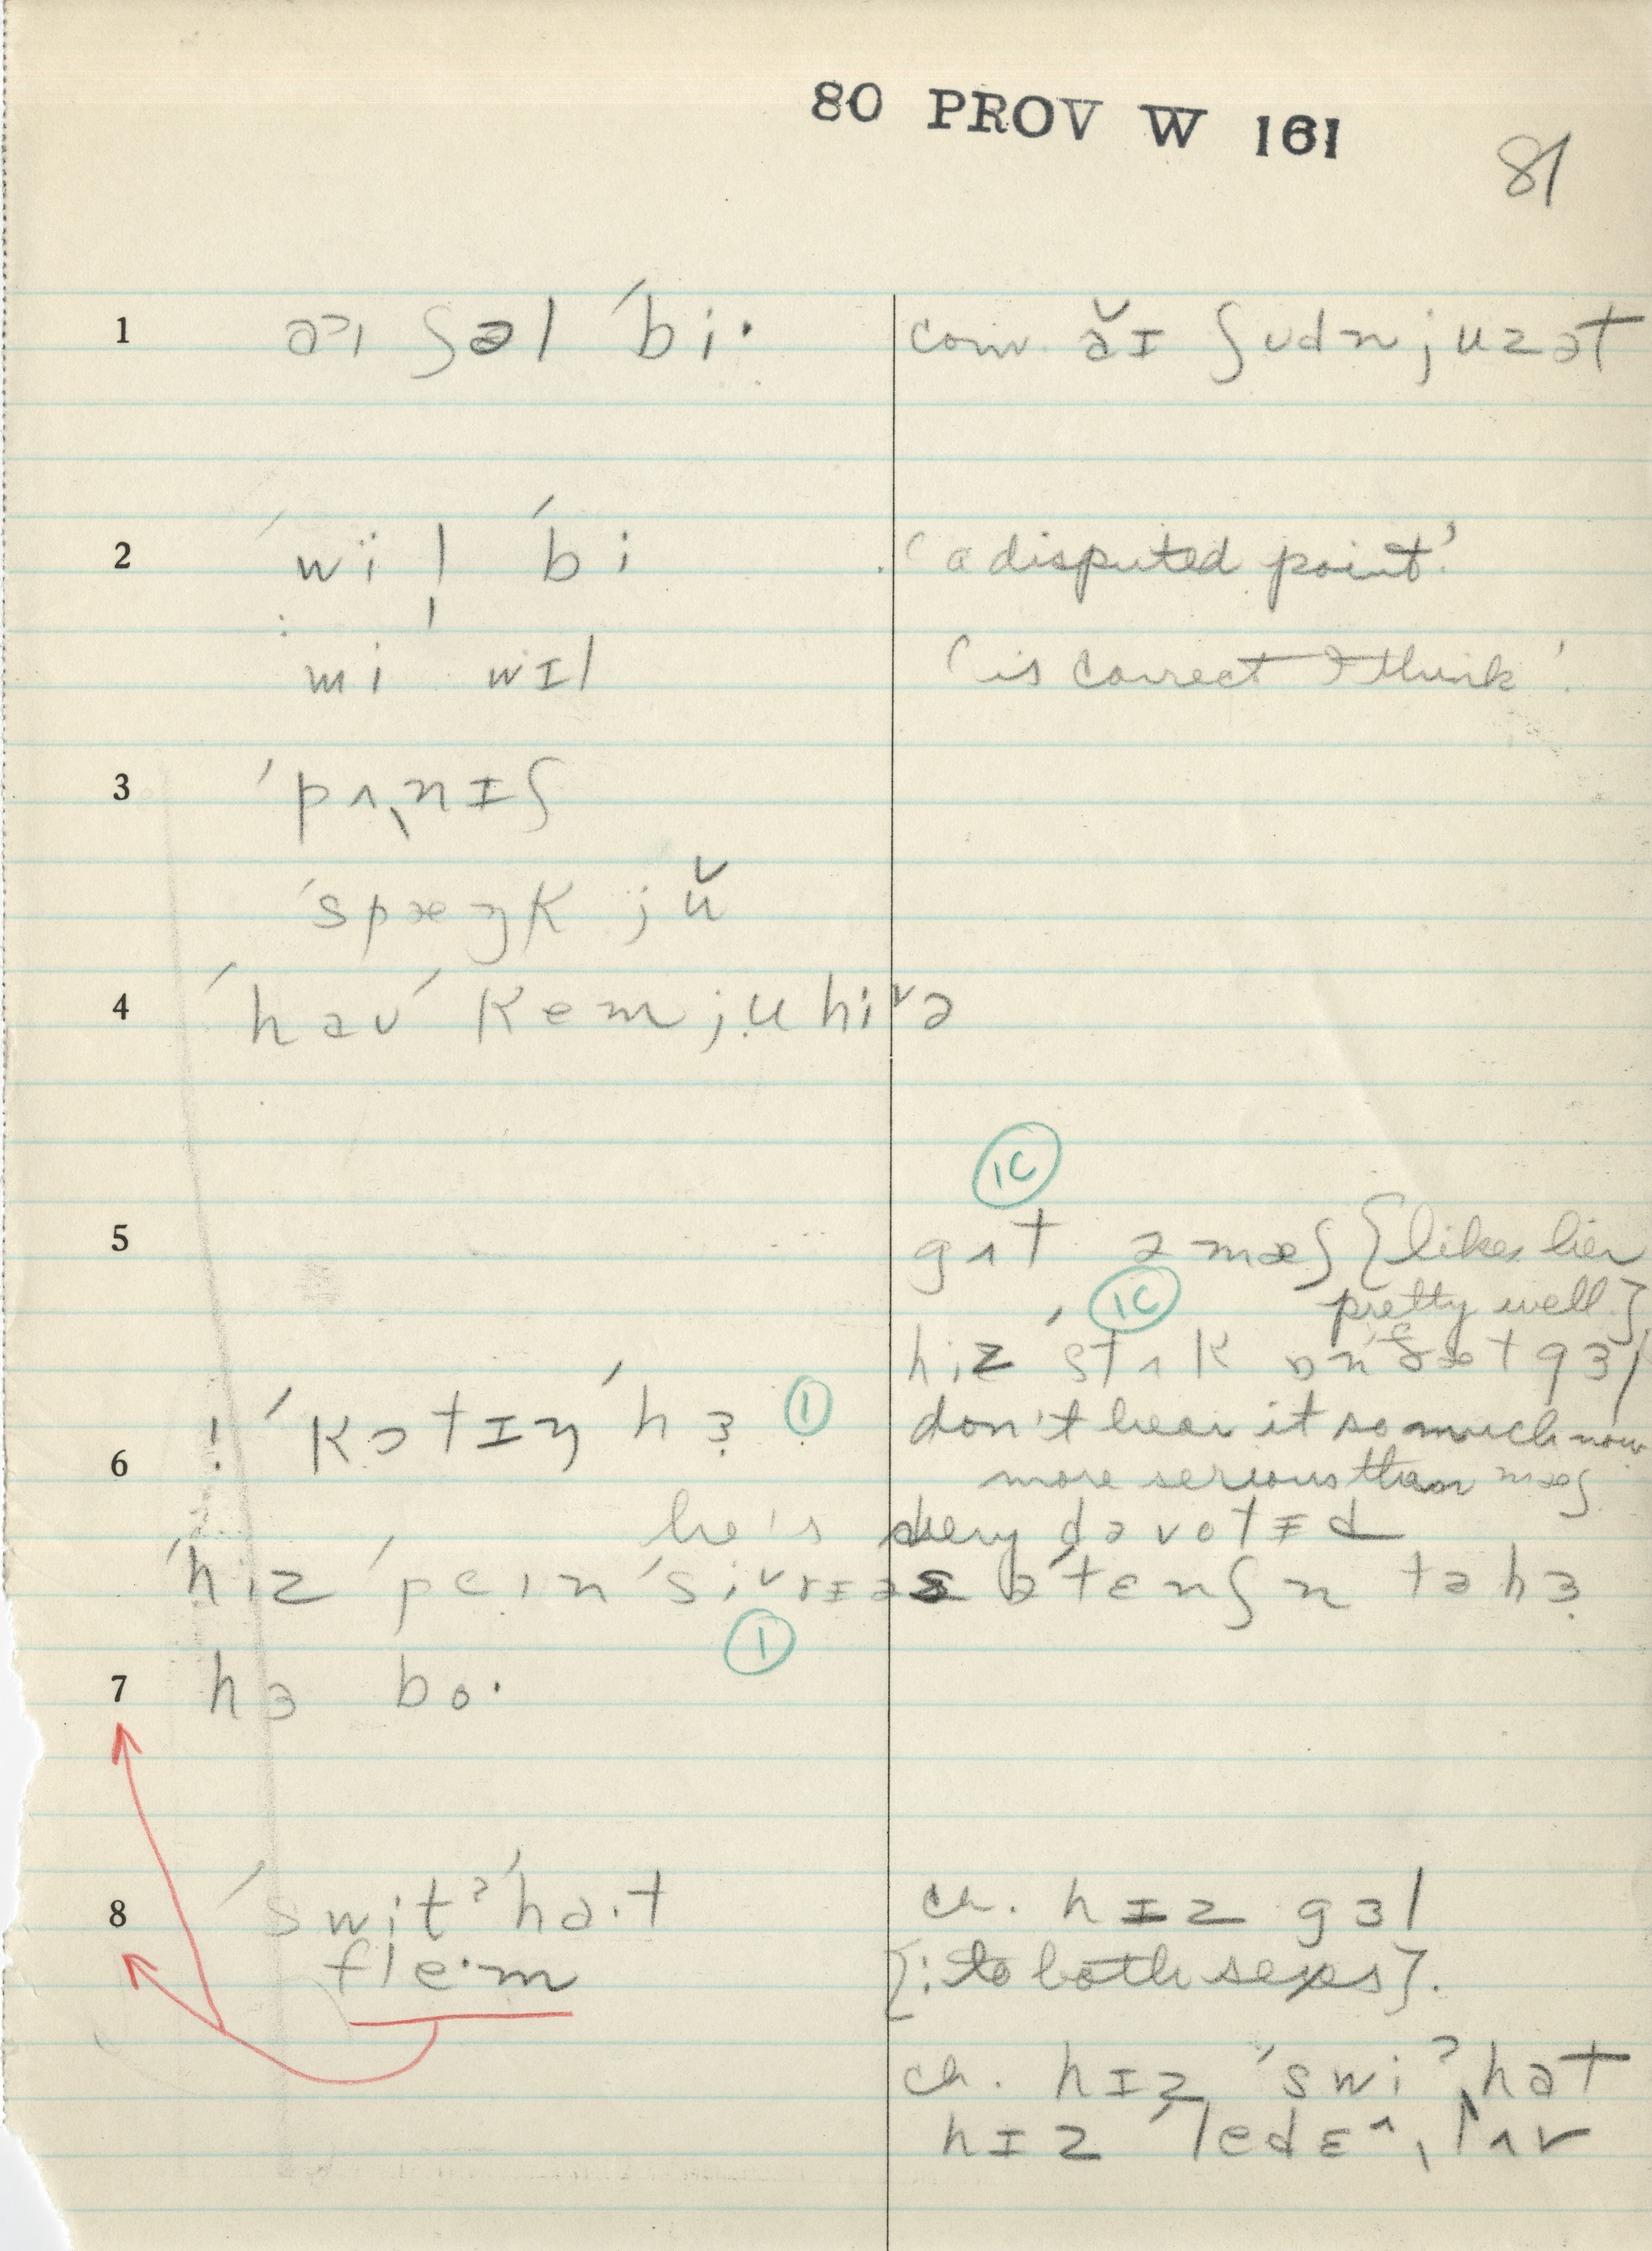 80 PROV W 161
81
1 aɪ ʃəl ˈbi· conv. ăɪ ʃʊdn juz ət
2 ˈwi l ˈbi ‘a disputed point’
mi wɪl ‘is correct I think’.
3 ˈpʌˌnɪʃ
ˈspæŋk jŭ
4 ˈhaʊ ˈkem ju hiᵛə
1C
5 gʌt ə mæʃ {likes her
1C pretty well}
hiz ˈstʌk ɒn ðæt gɜl
! ˈkɔtɪŋ ˈhɜ 1 don't hear it so much now
6 more serious than mæʃ
he's very dəvotɪd
ˈhiz ˈpeɪn ˈsiᵛrɪəs əˈtɛnʃn tə hɜ
1
7 hɜ bo·
8 ˈswitˀˈha·t ch. hɪz gɜl
fle·m {: to both sexes}.
ch. hɪz ˈswiˀˌhat
hɪz ˈledɛ^ˌlʌv